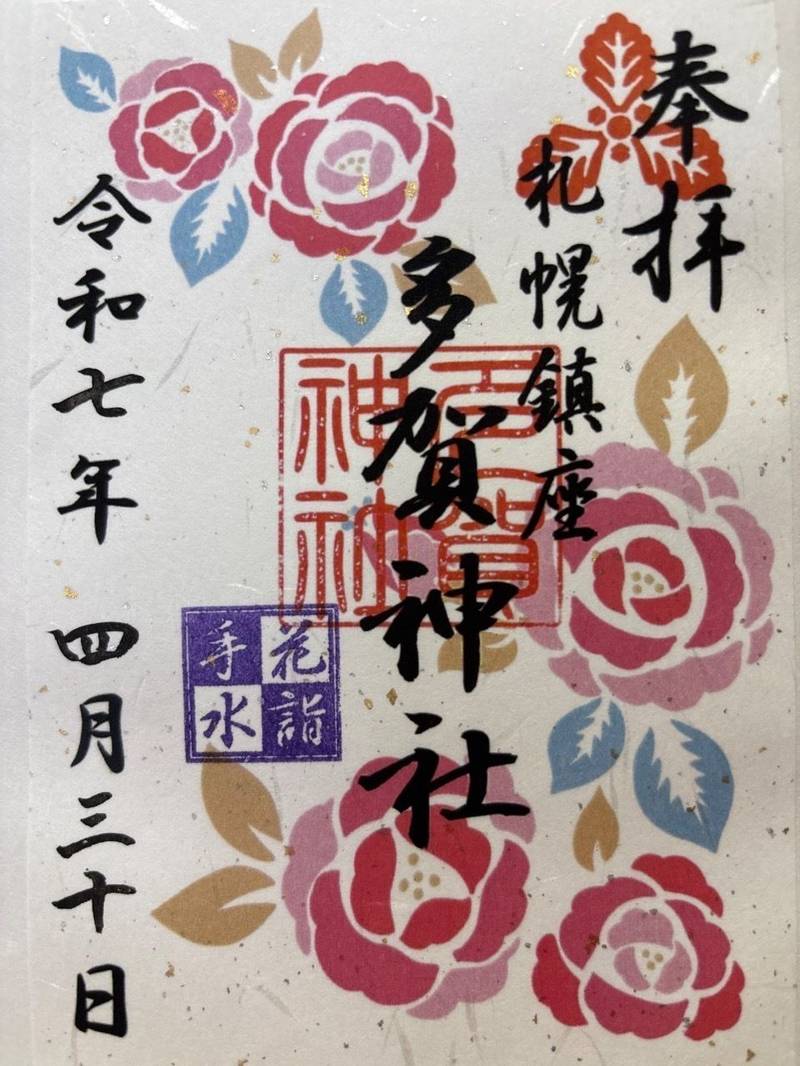 奉拝
札幌鎮座
多賀神社
多賀神社
花詣
手水
令和七年 四月三十日